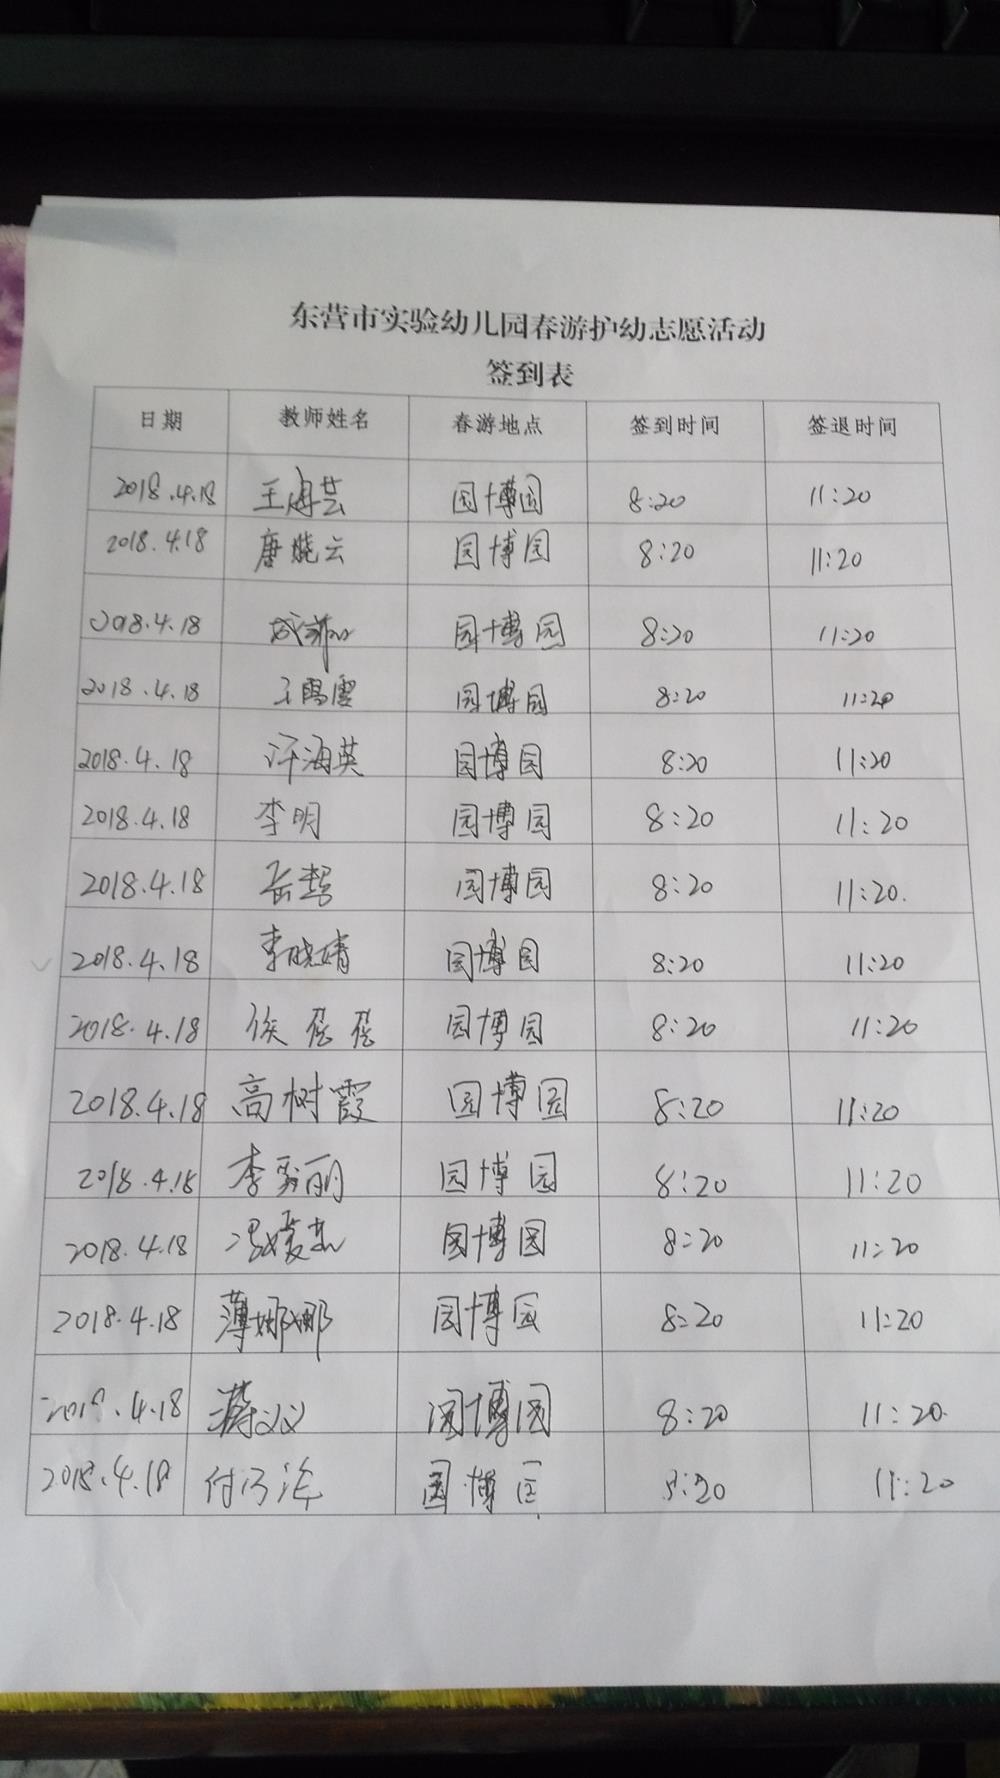 东营市实验幼儿园春游护幼志愿活动
签到表
日期 教师姓名 春游地点 签到时间 签退时间
2018.4.18 王海芸 园博园 8:20 11:20
2018.4.18 唐晓云 园博园 8:20 11:20
2018.4.18 园博园 8:20 11:20
2018.4.18 园博园 8:20 11:20
2018.4.18 许海英 园博园 8:20 11:20
2018.4.18 李明 园博园 8:20 11:20
2018.4.18 园博园 8:20 11:20.
2018.4.18 李晓婧 园博园 8:20 11:20
2018.4.18 侯蓓蓓 园博园 8:20 11:20
2018.4.18 高树霞 园博园 8:20 11:20
2018.4.18 园博园 8:20 11:20
2018.4.18 园博园 8:20 11:20
2018.4.18 薄娜娜 园博园 8:20 11:20
2018.4.18 园博园 8:20 11:20.
2018.4.18 园博园 8:20 11:20